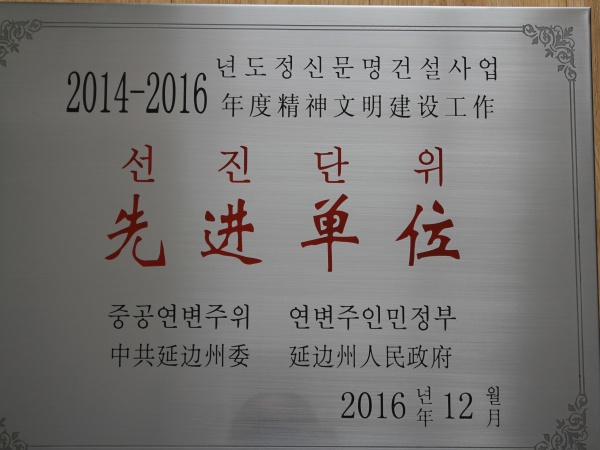 2014-2016 년도정신문명건설사업
年度精神文明建设工作
선진단위
先进单位
중공연변주위 연변주인민정부
中共延边州委 延边州人民政府
2016 년 12 월
年 月